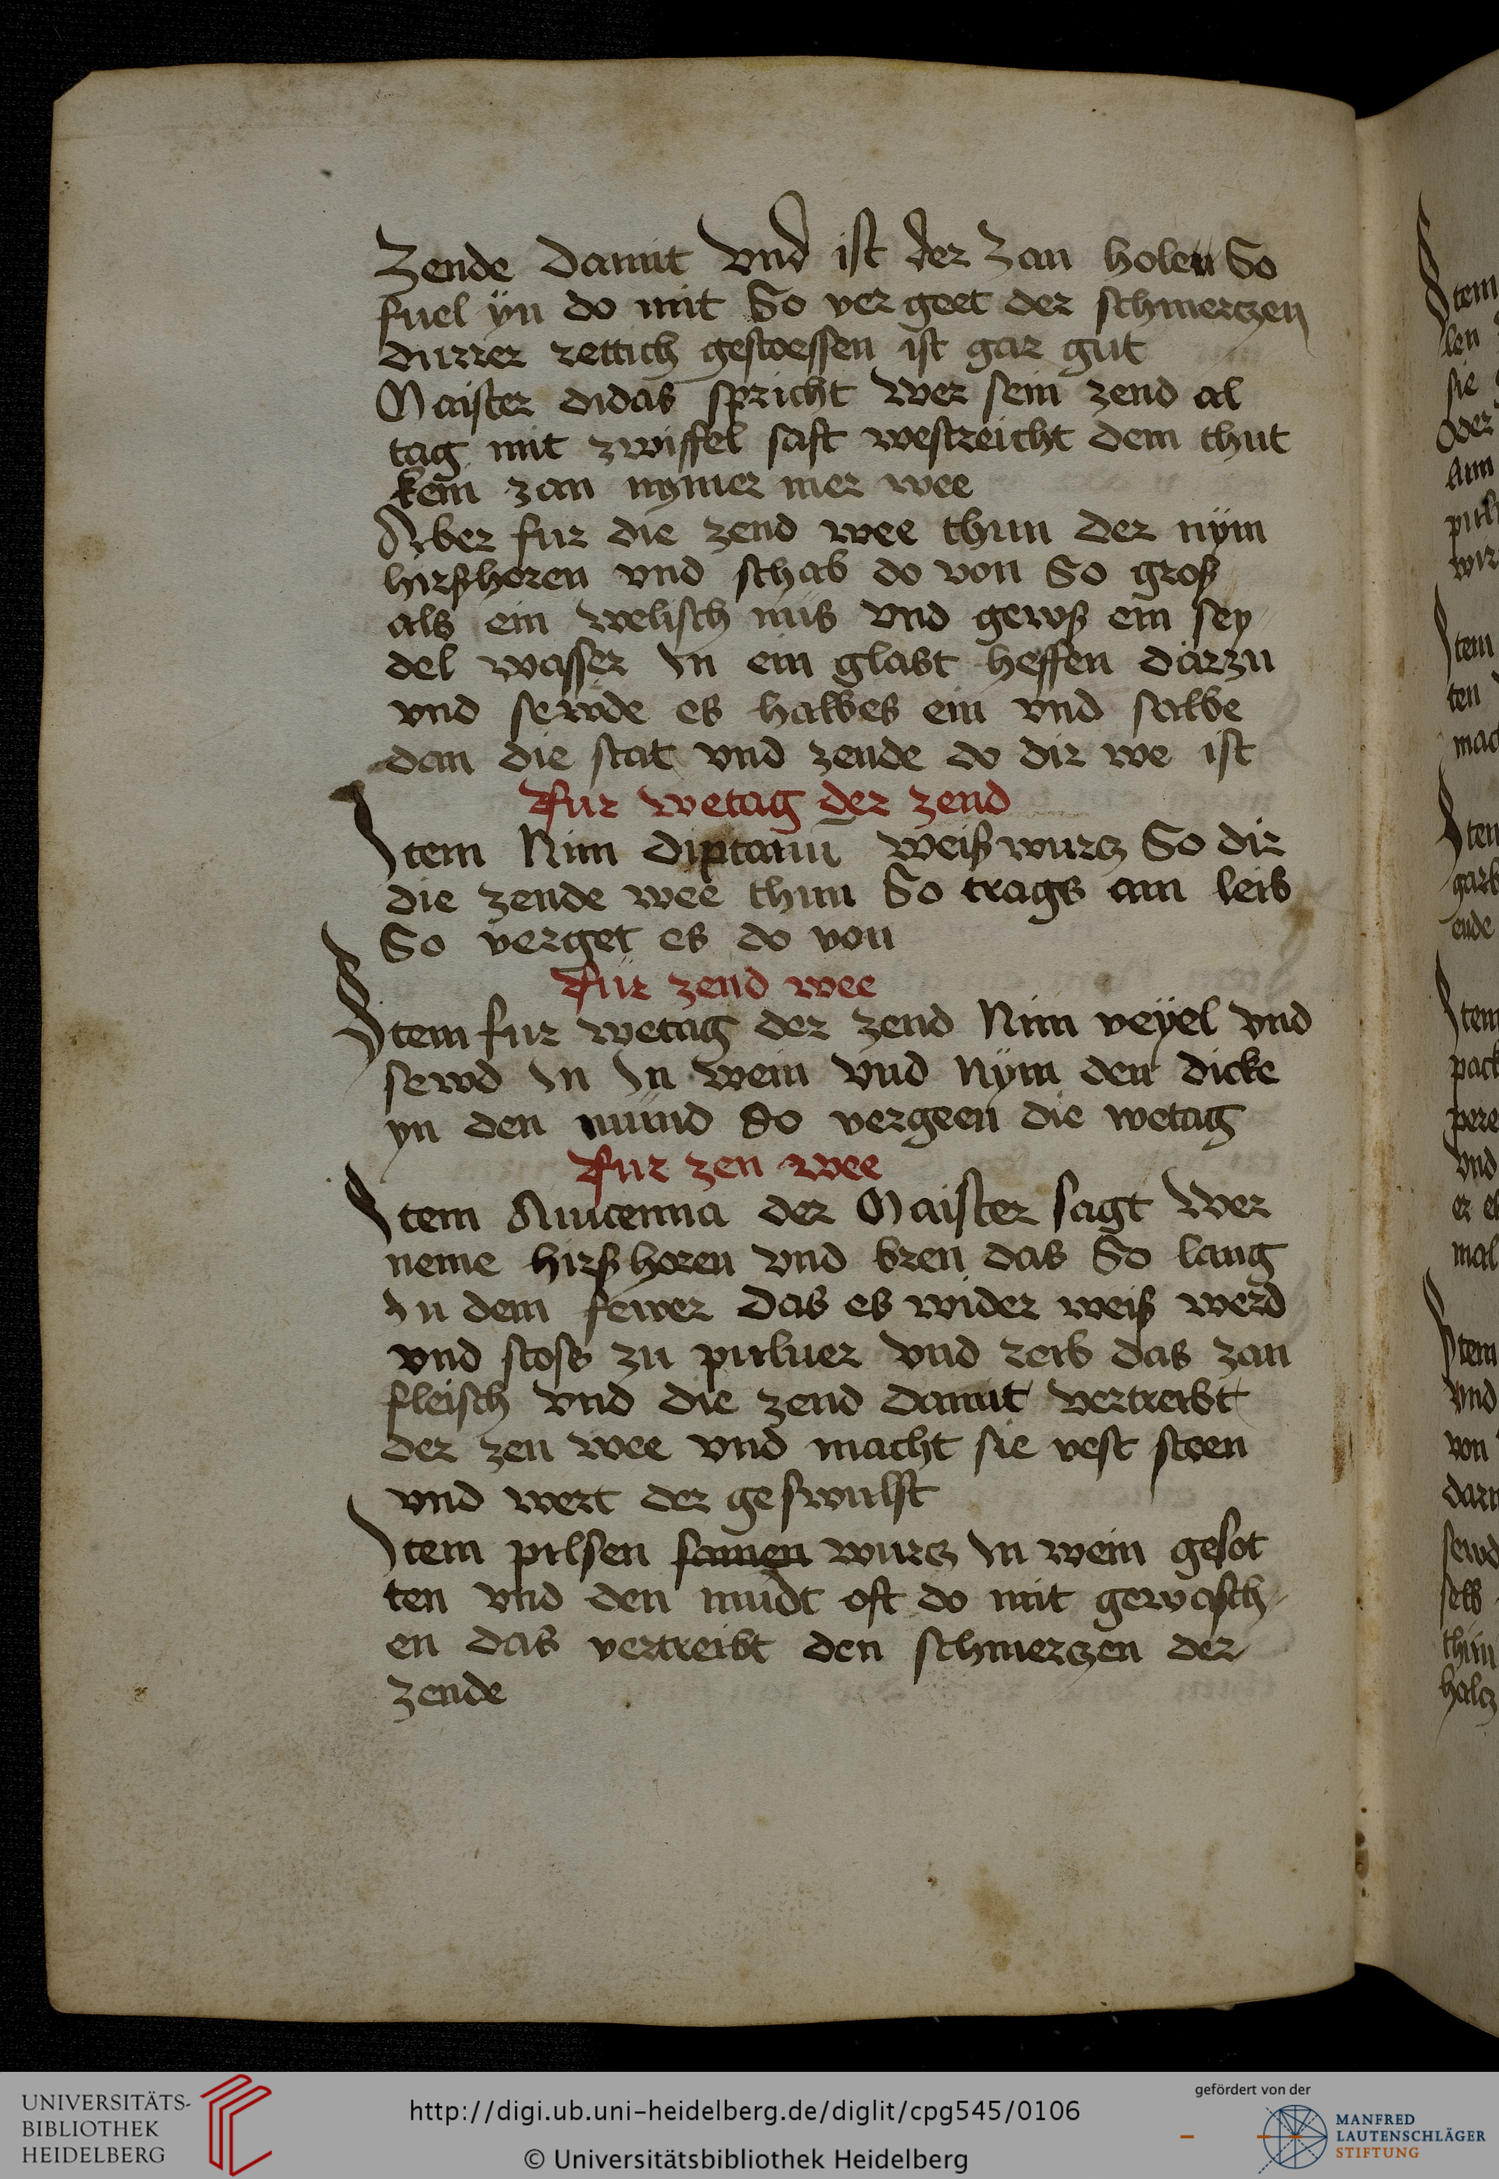 Zende damit Vnd ist der Zan holen So
fuel yn do mit So ver geet der schmerczen
durrer rettich gestoessen ist gar gut
Maister didas spricht Wer sein zend al
tag mit zwiffel saft westreicht dem thut
kein zan nymer mer wee
Aber fur die zend wee thun der nÿm
hirßhoren vnd schab do von So groß
als ein welisch nus vnd gewß ein sey
del wasser In ein glast heffen darzu
vnd sewde es halbes ein vnd salbe
dan die stat vnd zende do dir we ist
Fur wetag der zend
Item Nim diptam weißwurcz So dir
die zende wee thun So trags am leib
So verget es do von
Fur zend wee
Item fur wetag der zend Nim veÿel vnd
sewd In In wein vnd Nÿm den dicke
yn den mund So vergeen die wetag
Fur zen wee
Item Auicenna der Maister sagt Wer
neme hirßhoren vnd bren das So lang
In dem fewer das es wider weiß werd
vnd stoß zu puluer vnd reib das zan
fleisch vnd die zend damit vertreibt
der zen wee vnd macht sie vest steen
vnd wert der geswulst
Item pilsen samen wurcz In wein gesot
ten vnd den mudt oft do mit gewasch
en das vertreibt den schmerczen der
zende
Item
len
sie
Oder
wir
Item
ten
Item
Item
vnd
Item
vnd
von
UNIVERSITÄTS-
BIBLIOTHEK
HEIDELBERG
http://digi.ub.uni-heidelberg.de/diglit/cpg545/0106
© Universitätsbibliothek Heidelberg
gefördert von der
MANFRED
LAUTENSCHLÄGER
STIFTUNG